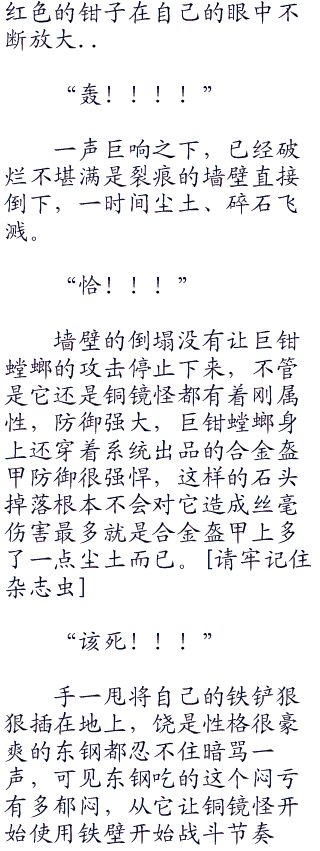 红色的钳子在自己的眼中不
断放大..
“轰！！！！”
一声巨响之下，已经破
烂不堪满是裂痕的墙壁直接
倒下，一时间尘土、碎石飞
溅。
“恰！！！”
墙壁的倒塌没有让巨钳
螳螂的攻击停止下来，不管
是它还是铜镜怪都有着刚属
性，防御强大，巨钳螳螂身
上还穿着系统出品的合金盔
甲防御很强悍，这样的石头
掉落根本不会对它造成丝毫
伤害最多就是合金盔甲上多
了一点尘土而已。[请牢记住
杂志虫]
“该死！！！”
手一甩将自己的铁铲狠
狠插在地上，饶是性格很豪
爽的东钢都忍不住暗骂一
声，可见东钢吃的这个闷亏
有多郁闷，从它让铜镜怪开
始使用铁壁开始战斗节奏